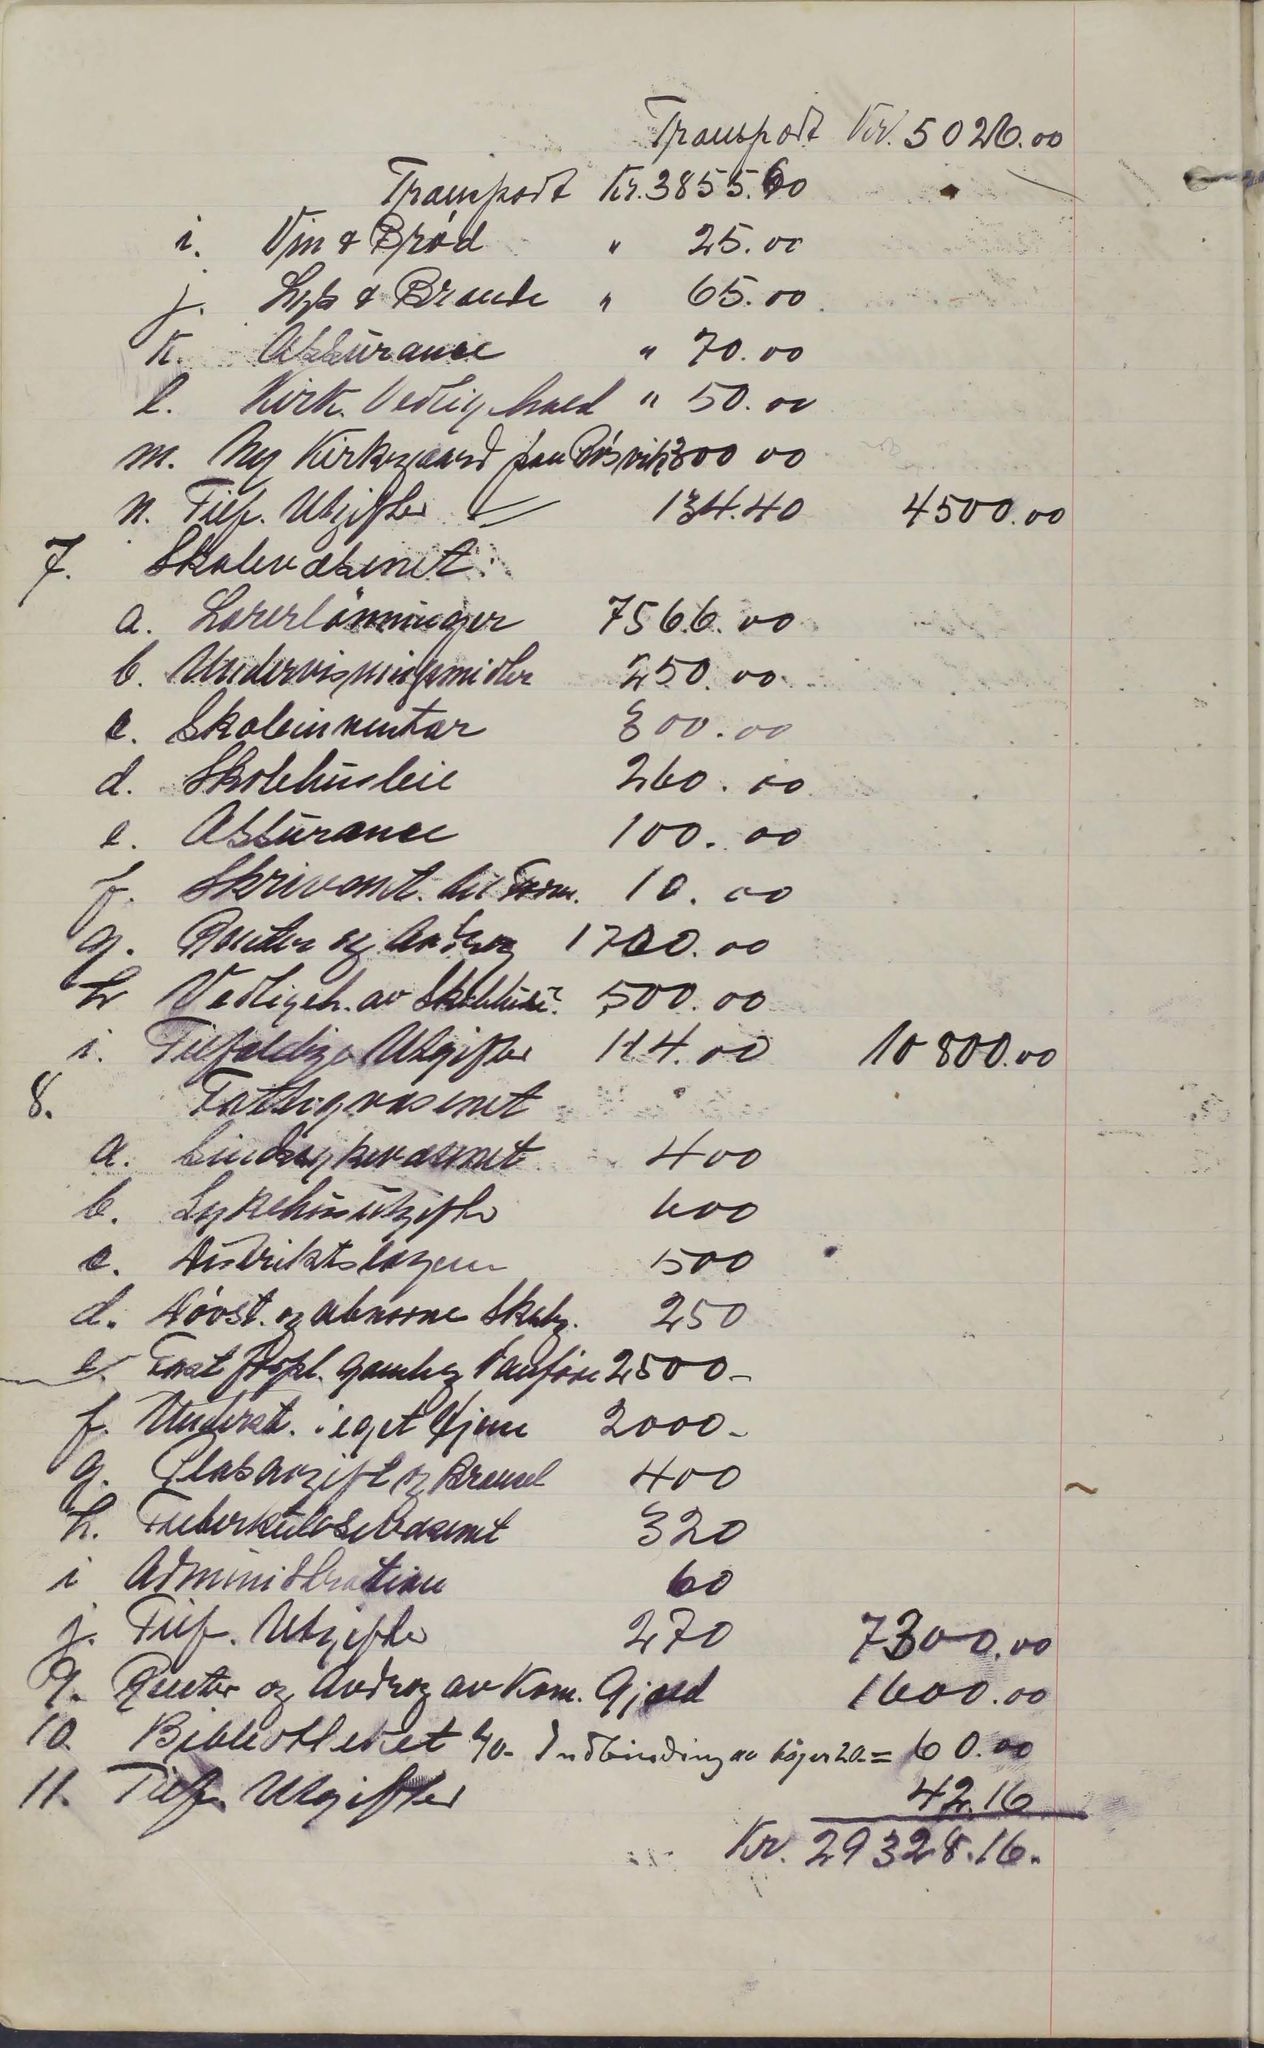 Transport Kr. 5026.00
Transport Kr. 3855.60
i. Vin & Brød " 25.00
j. Lys & Brænde " 65.00
k. Assurance " 70.00
l. Kirk. Vedligehold " 50.00
m. Ny Kirkegaard paa Røsvik 300 00
n. Tilf. Utgifter 134.40 4500.00
7. Skolevæsenet.
a. Lærerlønninger 7566.00
b. Undervisningsmidler 250.00
c. Skoleinventar 300.00
d. Skolehusleie 260.00
e. Assurance 100.00
f. Skrivemt. til Form. 10.00
g. Renter og Avdrag 1700.00
h Vedligeh. av Skolehuse 500.00
i. Tilfeldige Utgifter 114.00 10800.00
8. Fattigvæsenet
a. Sindssykevæsenet 400
b. Sykehusutgifter 600
c. Distriktslægen 500
d. Døvst. og abnorme Skoler. 250
e. Fast forpl. gamle og Vanføre 2500-
f. Underst. i eget Hjem 2000-
g. Legdsavgift og Brænsel 400
h. Tuberkulosevæsenet 320
i Administration 60
j. Tilf. Utgifter 270 7300.00
9. Renter og Avdrag av Kom. Gjæld 1600.00
10. Biblioteket 40- Indbinding av bøger 20.= 60.00
11. Tilf. Utgifter 42.16
Kr. 29328.16.